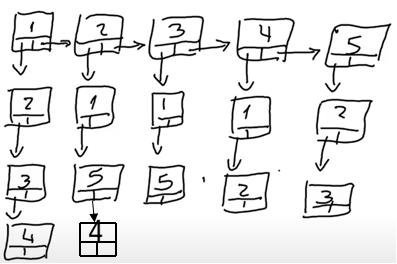 1 2 3 4 5
2 1 1 1 2
3 5 5 2 3
4 4